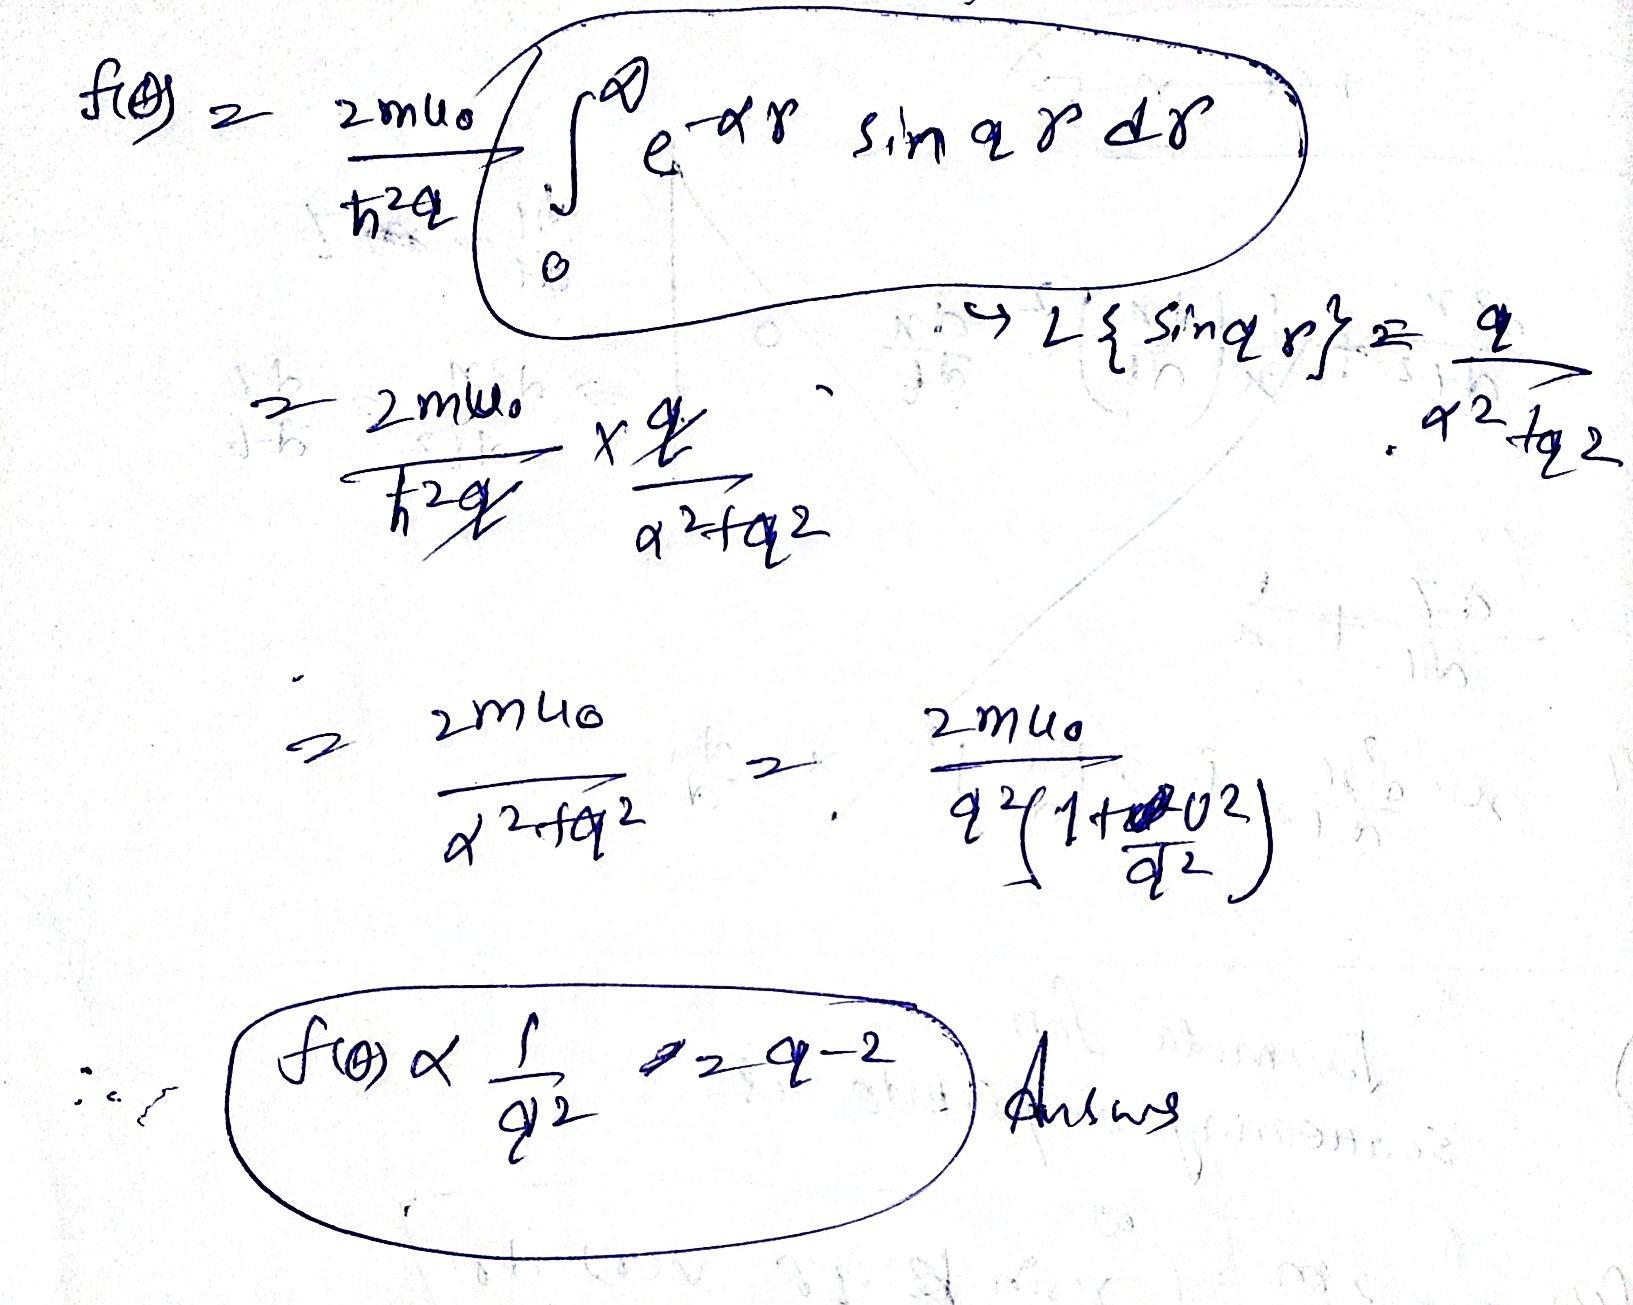 f(θ) = 2mu₀/ħ²q ∫₀^∞ e^-αr sin q r dr
↳ L{sinq r} = q/α²+q²
= 2mu₀/ħ²q × q/α²+q²
= 2mu₀/α²+q² = 2mu₀/q²(1+α²/q²)
∴ f(θ) ∝ 1/q² = q-2 Answs